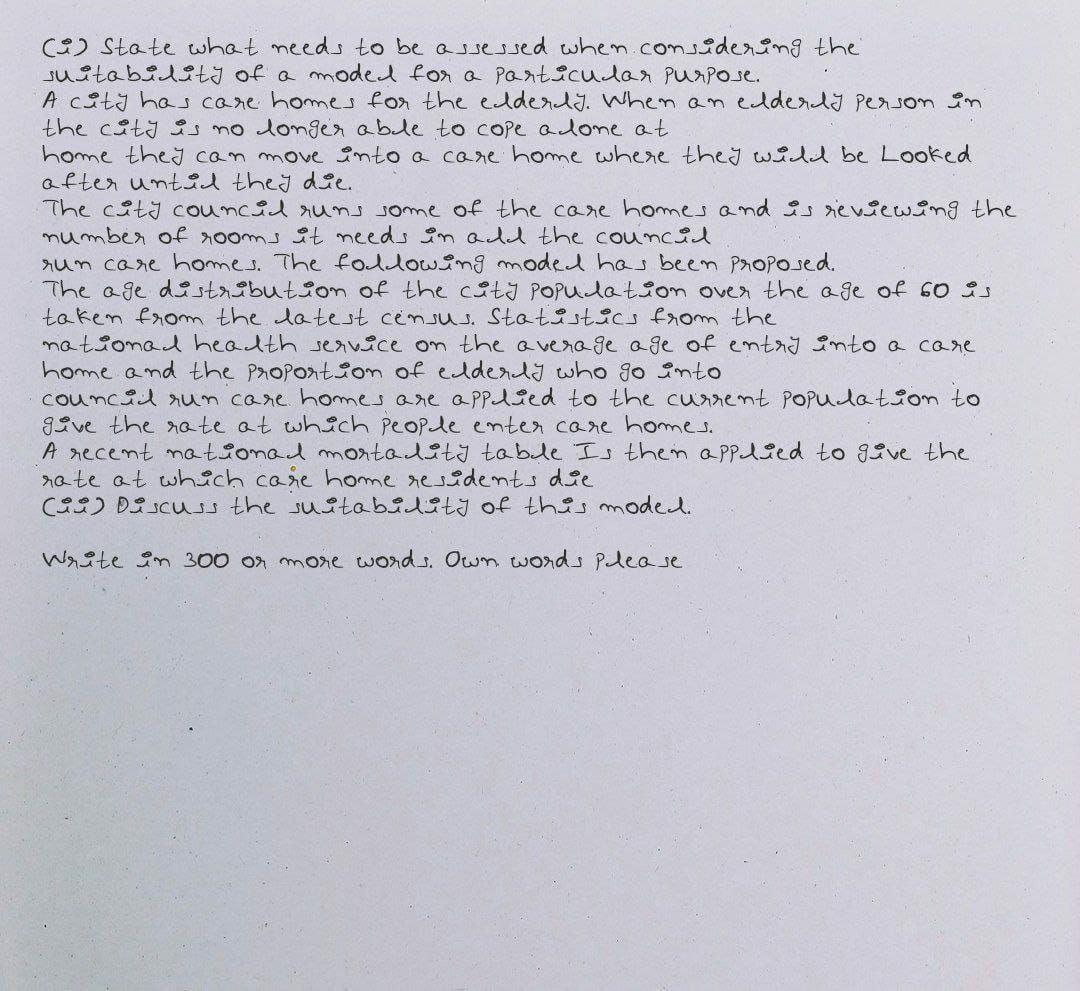 (i) State what needs to be assessed when considering the
suitability of a model for a particular purpose.
A city has care homes for the elderly. When an elderly person in
the city is no longer able to cope alone at
home they can move into a care home where they will be Looked
after until they die.
The city council runs some of the care homes and is reviewing the
number of rooms it needs in all the council
run care homes. The following model has been proposed.
The age distribution of the city population over the age of 60 is
taken from the latest census. Statistics from the
national health service on the average age of entry into a care
home and the proportion of elderly who go into
council run care homes are applied to the current population to
give the rate at which people enter care homes.
A recent national mortality table Is then applied to give the
rate at which care home residents die
(ii) Discuss the suitability of this model.
Write in 300 or more words. Own words please